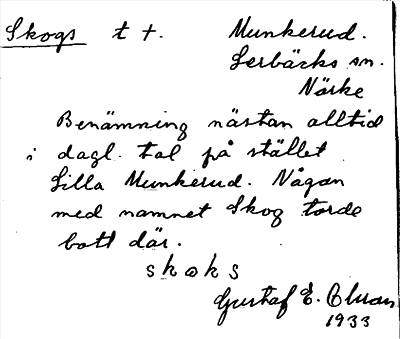 Skogs t +. Munkerud.
Lerbäcks sn.
Närke
Benämning nästan alltid
i dagl. tal på stället
Lilla Munkerud. Någon
med namnet Skog torde
bott där.
skoks
Gustaf E.
1933